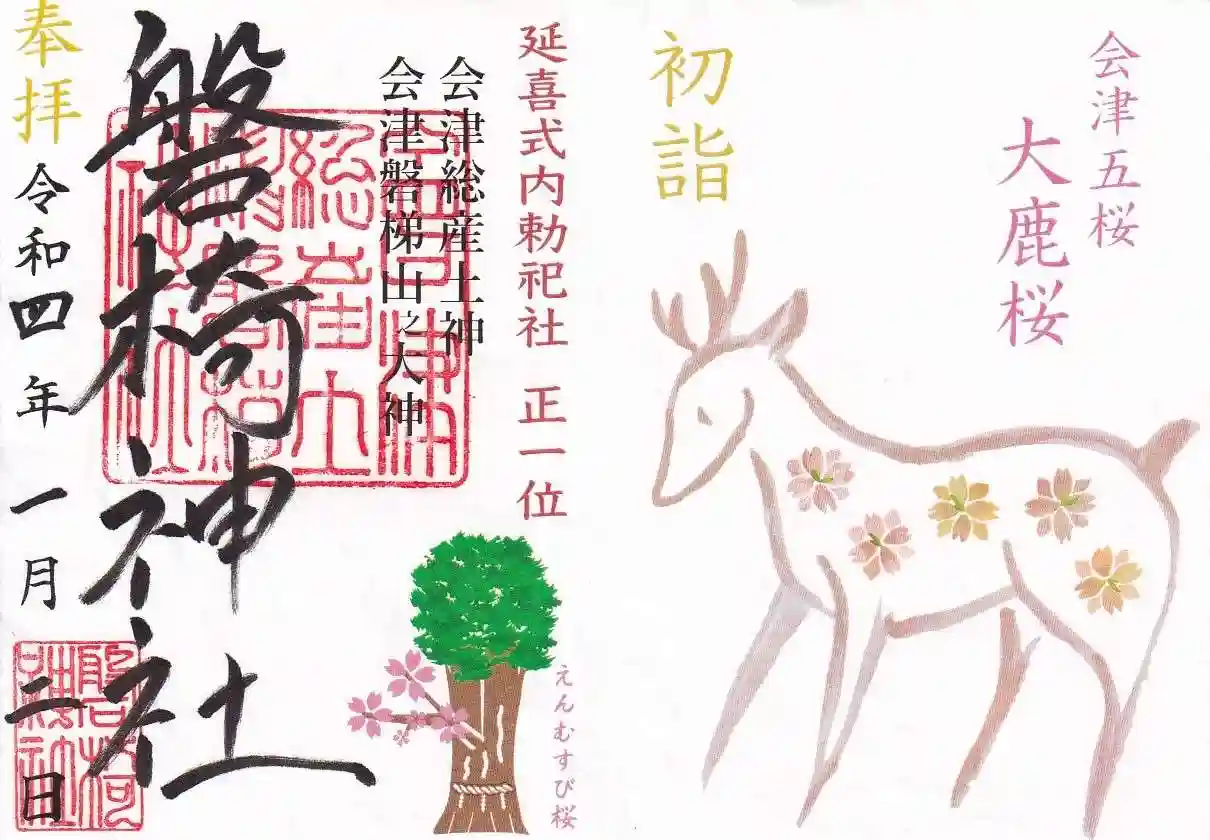 会津五桜
大鹿桜
初詣
延喜式内勅祀社 正一位
会津総産土神
会津磐梯山之大神
えんむすび桜
磐椅神社
奉拝
令和四年一月二日
磐椅
神社